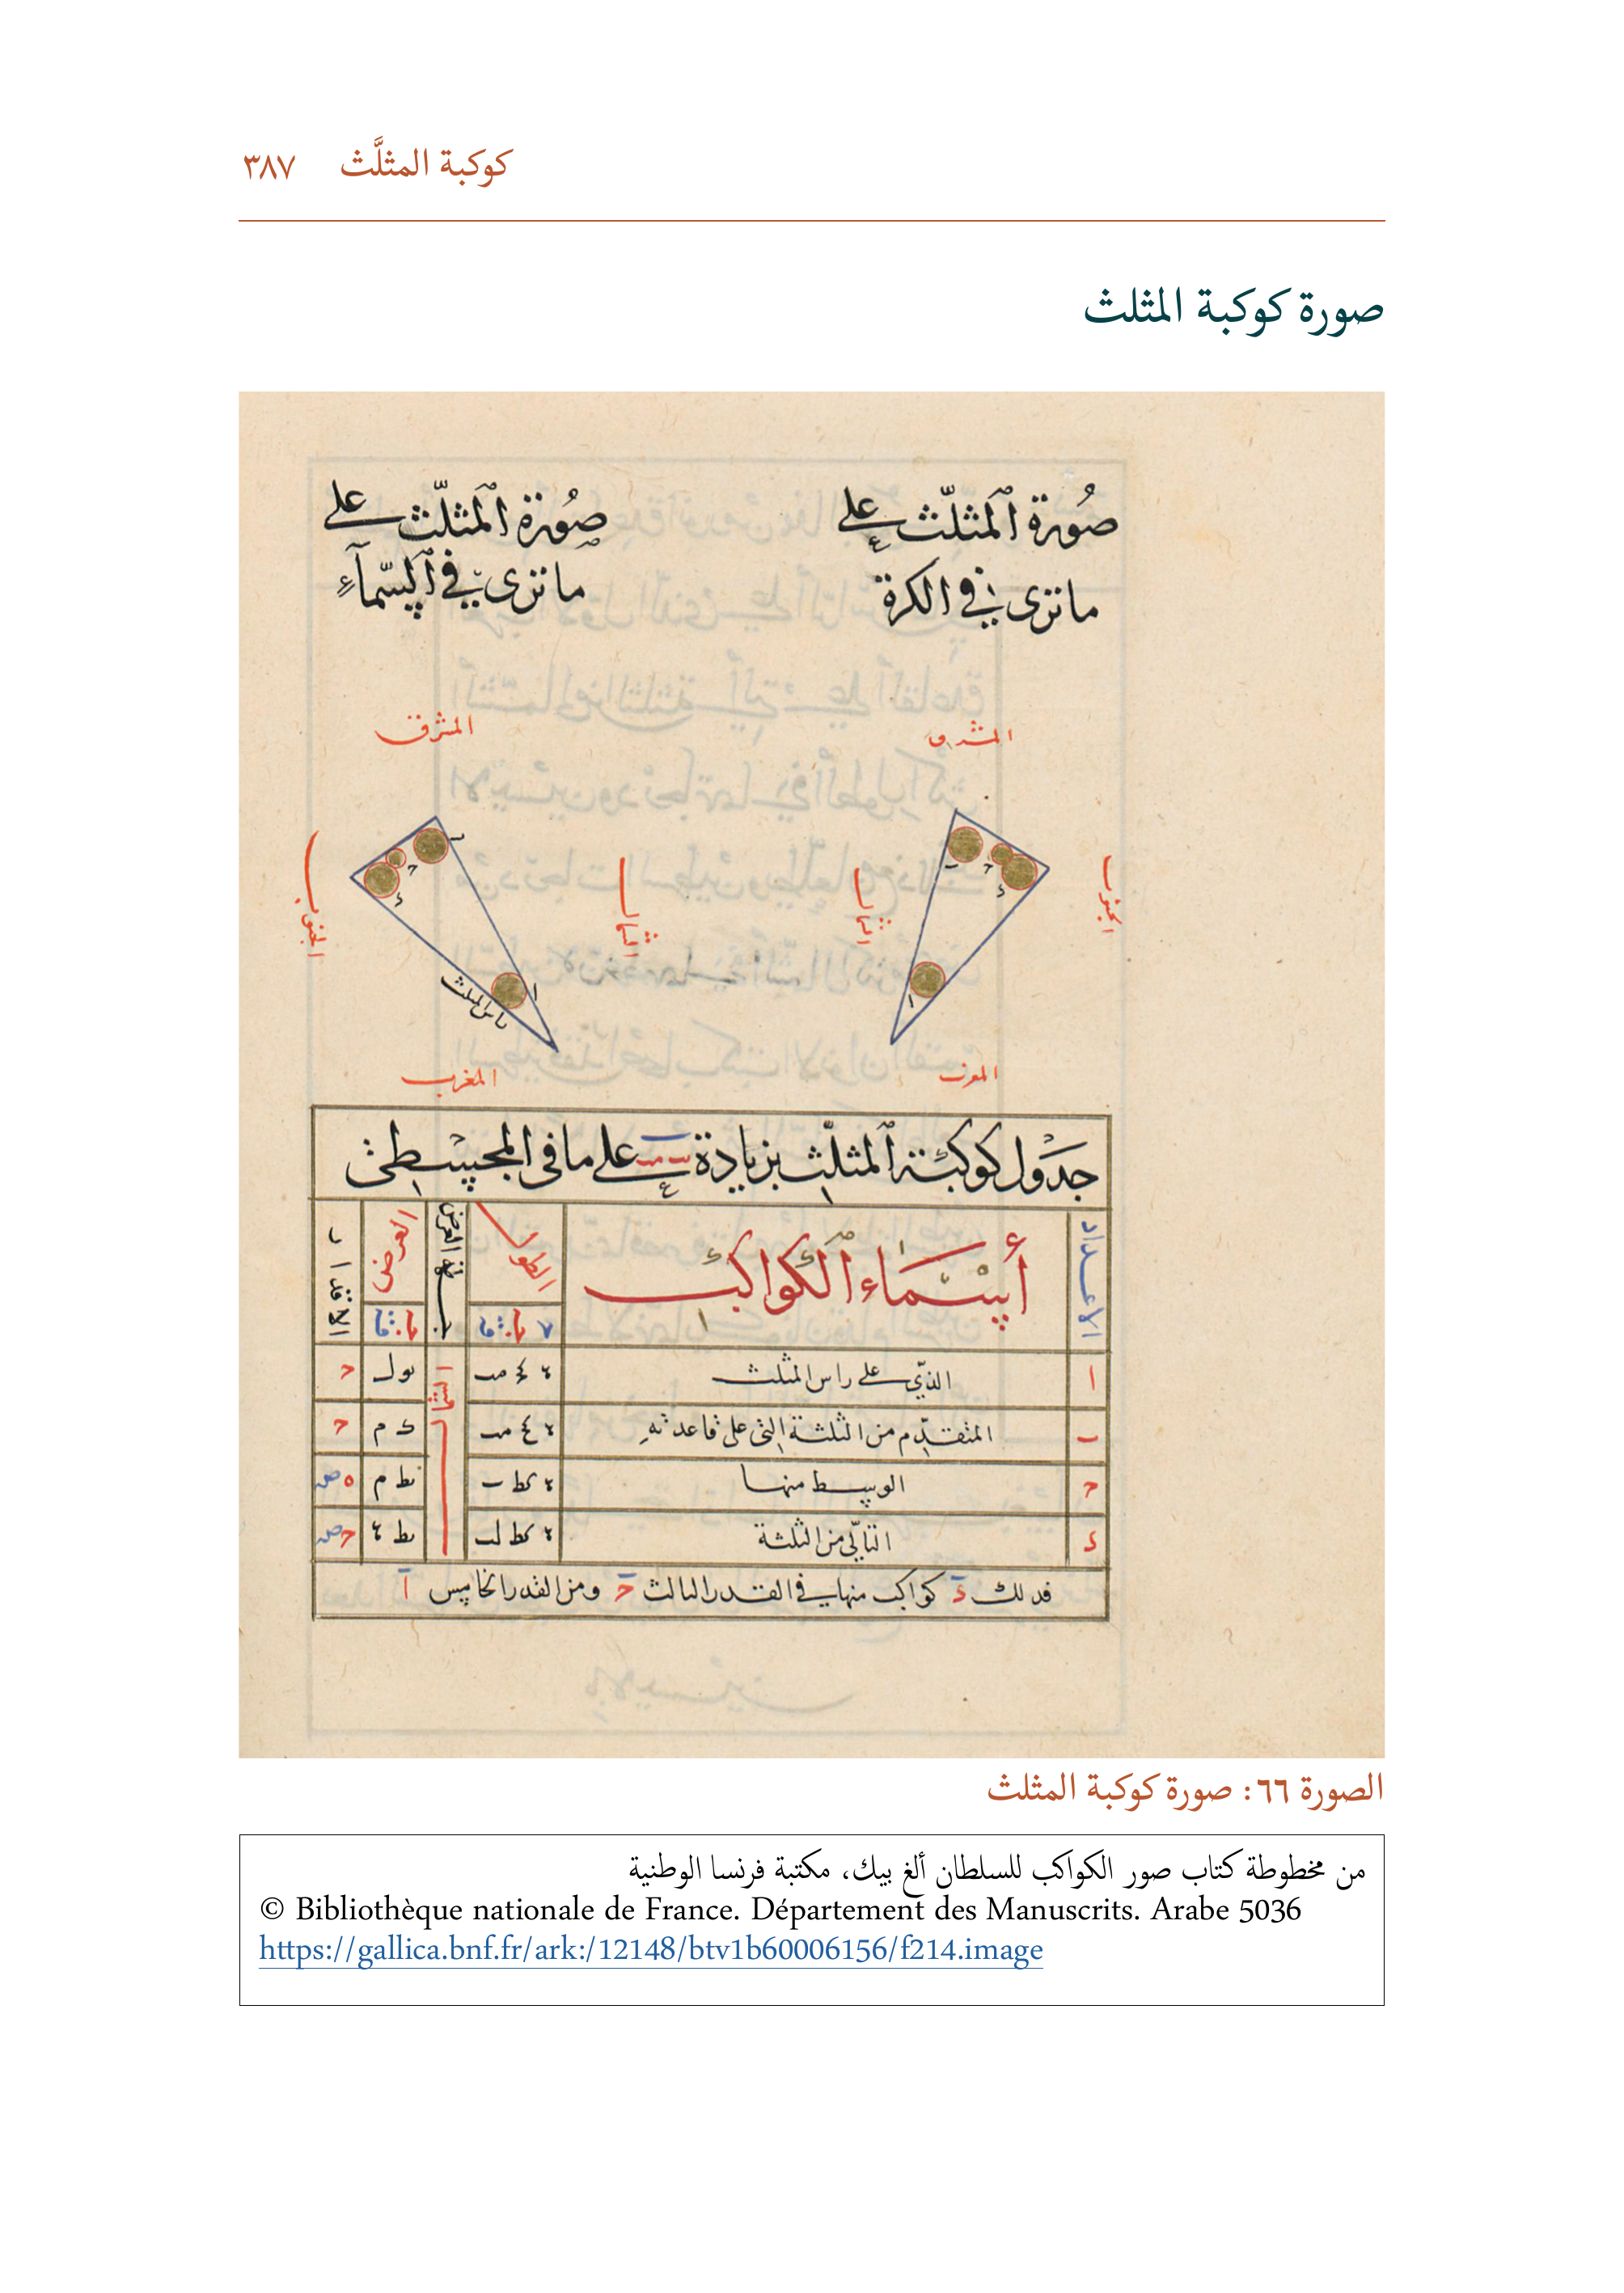 كوكبة المثلَّث ٣٨٧
صورة كوكبة المثلث
صُورة المثلّث على
ما ترى في الكرة
صُورة المثلّث على
ما ترى في السّماء
المشرق
المشرق
الجنوب
الشمال
الشمال
الجنوب
راس المثلث
المغرب
المغرب
جدول كوكبة المثلّث بزيادة على ما في المجسطي
الاعداد
أسماء الكواكب
الطول
جهة العرض
العرض
الاقدار
ا الذي على راس المثلث
ب المتقدّم من الثلثة التي على قاعدته
ح الوسط منها
د التالي من الثلثة
الشمال
فذلك د كواكب منها في القدر الثالث ح ومن القدر الخامس ا
الصورة ٦٦: صورة كوكبة المثلث
من مخطوطة كتاب صور الكواكب للسلطان ألغ بيك، مكتبة فرنسا الوطنية
© Bibliothèque nationale de France. Département des Manuscrits. Arabe 5036
https://gallica.bnf.fr/ark:/12148/btv1b60006156/f214.image